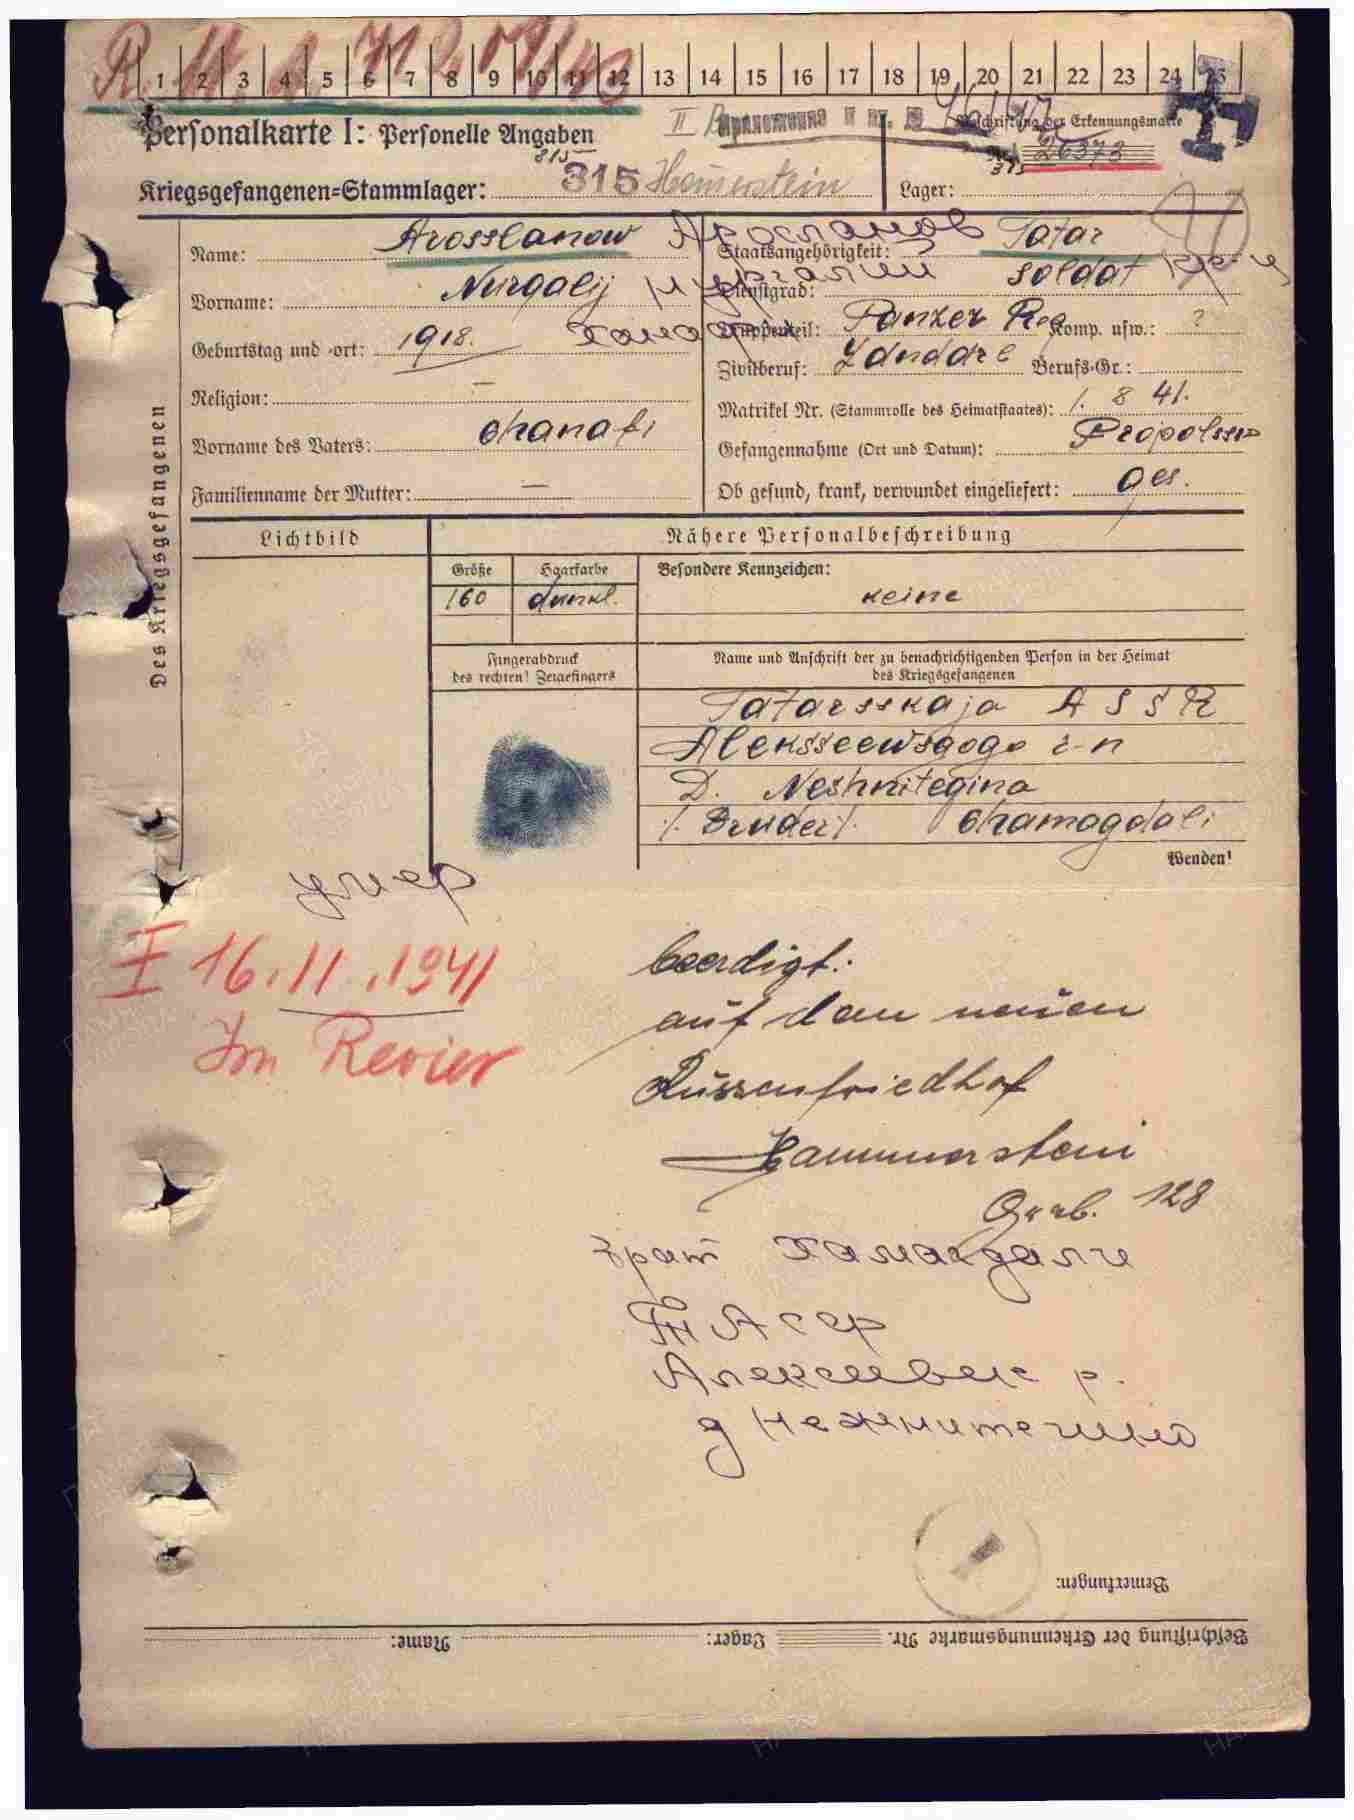 1 2 3 4 5 6 7 8 9 10 11 12 13 14 15 16 17 18 19 20 21 22 23 24 25
Personalkarte I: Personelle Angaben
II Приложение к вх. №
Beschriftung der Erkennungsmarke
Nr. 26373
315
315
Kriegsgefangenen=Stammlager: 315 Hamerstein
Lager:
Des Kriegsgefangenen
Name: Arosslanow Аросланов
Vorname: Nurgalij Нургалий
Geburtstag und -ort: 1918.
Religion: —
Vorname des Vaters: Chanafi
Familienname der Mutter: —
Staatsangehörigkeit: Tatar
Dienstgrad: Soldat
Truppenteil: Panzer Reg Komp. usw.: ?
Zivilberuf: Berufs-Gr.:
Matrikel Nr. (Stammrolle des Heimatstaates): 1. 8 41.
Gefangennahme (Ort und Datum): Propolssk
Ob gesund, krank, verwundet eingeliefert: ges.
Lichtbild
Nähere Personalbeschreibung
Größe Haarfarbe Besondere Kennzeichen:
160 dunkl. keine
Fingerabdruck
des rechten! Zeigefingers
Name und Anschrift der zu benachrichtigenden Person in der Heimat
des Kriegsgefangenen
Tatarsskaja A S S R
Aleksseewsgogo r-n
D. Neshnitegina
/. Bruder /. Chamagdali
Wenden!
умер
16.11.1941
Im Revier
beerdigt:
auf dem neuen
Russenfriedhof
Hammerstein
Grab. 128
брат Хамагдали
Т Асср
Алексеевск р.
д Нежнитегино
Bemerkungen:
Beschriftung der Erkennungsmarke Nr. Lager: Name: